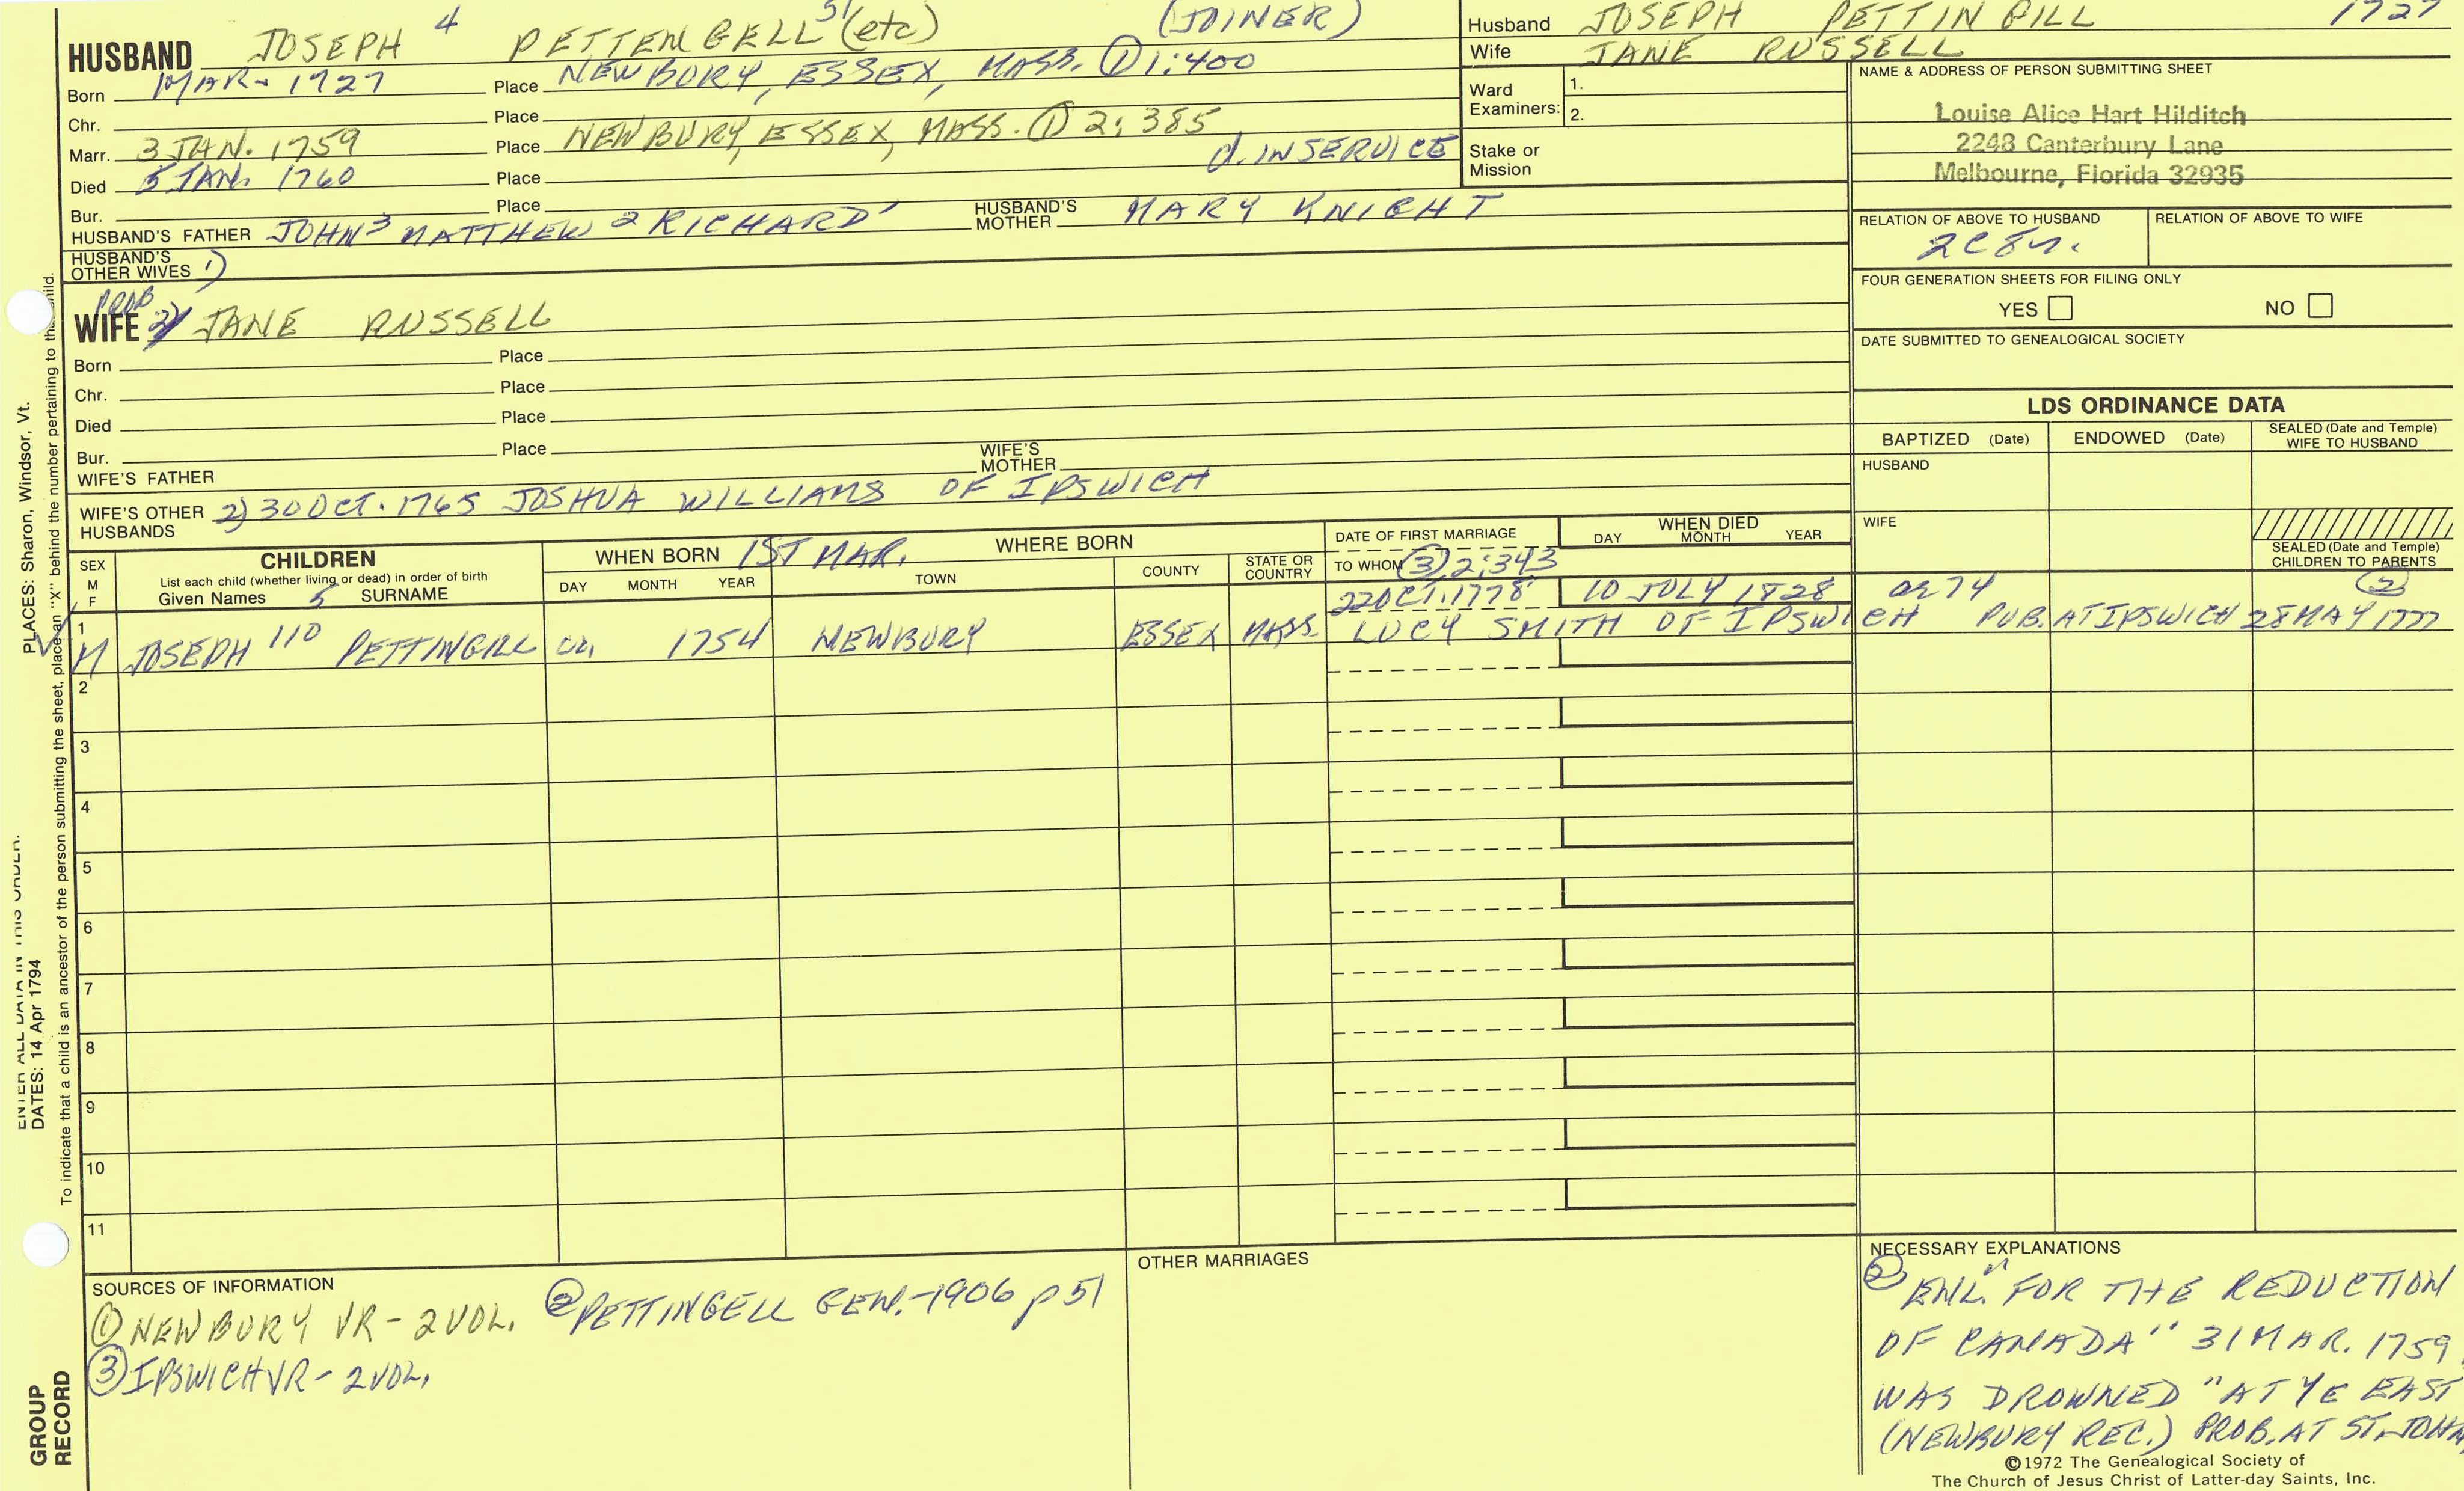 HUSBAND JOSEPH 4 PETTENGELL 51 (etc) (JOINER)
Born MAR- 1727 Place NEWBURY, ESSEX, MASS. ① 1:400
Chr. Place
Marr. 3 JAN. 1759 Place NEWBURY, ESSEX, MASS. ① 2:385
Died 5 JAN. 1760 Place d. IN SERVICE
Bur. Place
HUSBAND'S FATHER JOHN 3 MATTHEW 2 RICHARD ' HUSBAND'S MOTHER MARY KNIGHT
HUSBAND'S OTHER WIVES 1)
PROB
WIFE 2) JANE RUSSELL
Born Place
Chr. Place
Died Place
Bur. Place
WIFE'S FATHER WIFE'S MOTHER
WIFE'S OTHER HUSBANDS 2) 30 OCT. 1765 JOSHUA WILLIAMS OF IPSWICH
Husband JOSEPH PETTINGILL 1727
Wife JANE RUSSELL
Ward Examiners: 1.
2.
Stake or Mission
NAME & ADDRESS OF PERSON SUBMITTING SHEET
Louise Alice Hart Hilditch
2248 Canterbury Lane
Melbourne, Florida 32935
RELATION OF ABOVE TO HUSBAND RELATION OF ABOVE TO WIFE
2C8r.
FOUR GENERATION SHEETS FOR FILING ONLY
YES NO
DATE SUBMITTED TO GENEALOGICAL SOCIETY
LDS ORDINANCE DATA
BAPTIZED (Date) ENDOWED (Date) SEALED (Date and Temple) WIFE TO HUSBAND
HUSBAND
WIFE
SEALED (Date and Temple) CHILDREN TO PARENTS
SEX M F
CHILDREN
List each child (whether living or dead) in order of birth
Given Names 5 SURNAME
WHEN BORN 1ST MAR. WHERE BORN
DAY MONTH YEAR TOWN COUNTY STATE OR COUNTRY
DATE OF FIRST MARRIAGE
TO WHOM ③ 2:343
WHEN DIED
DAY MONTH YEAR
22 OCT. 1778 10 JULY 1828 ae 74 ②
1 M JOSEPH 110 PETTINGILL ca. 1754 NEWBURY ESSEX MASS. LUCY SMITH OF IPSWICH PUB. AT IPSWICH 28 MAY 1777
2
3
4
5
6
7
8
9
10
11
SOURCES OF INFORMATION
① NEWBURY VR - 2 VOL. ② PETTINGELL GEN. - 1906 p 51
③ IPSWICH VR - 2 VOL.
OTHER MARRIAGES
NECESSARY EXPLANATIONS
② ENL. "FOR THE REDUCTION
OF CANADA" 31 MAR. 1759
WAS DROWNED "AT YE EAST
(NEWBURY REC.) PROB. AT ST. JOHN
©1972 The Genealogical Society of
The Church of Jesus Christ of Latter-day Saints, Inc.
PLACES: Sharon, Windsor, Vt.
ENTER ALL DATA IN THIS ORDER:
DATES: 14 Apr 1794
To indicate that a child is an ancestor of the person submitting the sheet, place an "X" behind the number pertaining to that child.
GROUP
RECORD